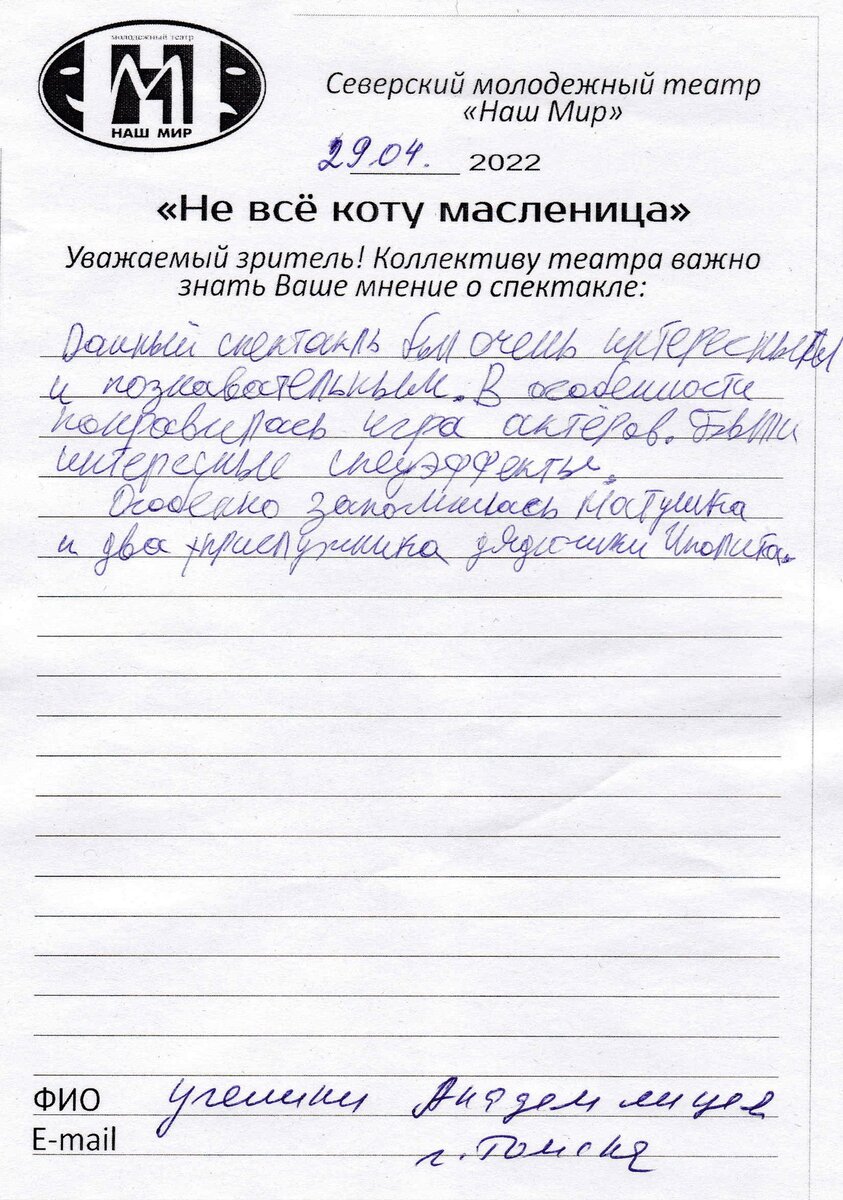 молодежный театр
НАШ МИР
Северский молодежный театр
«Наш Мир»
29.04. 2022
«Не всё коту масленица»
Уважаемый зритель! Коллективу театра важно
знать Ваше мнение о спектакле:
Данный спектакль был очень интересным
и познавательным. В особенности
понравилась игра актёров. Были
интересные спецэффекты.
Особенно запомнилась Матушка
и два прислужника дядюшки Иполита.
ФИО ученики Академ лицея
E-mail г. Томска